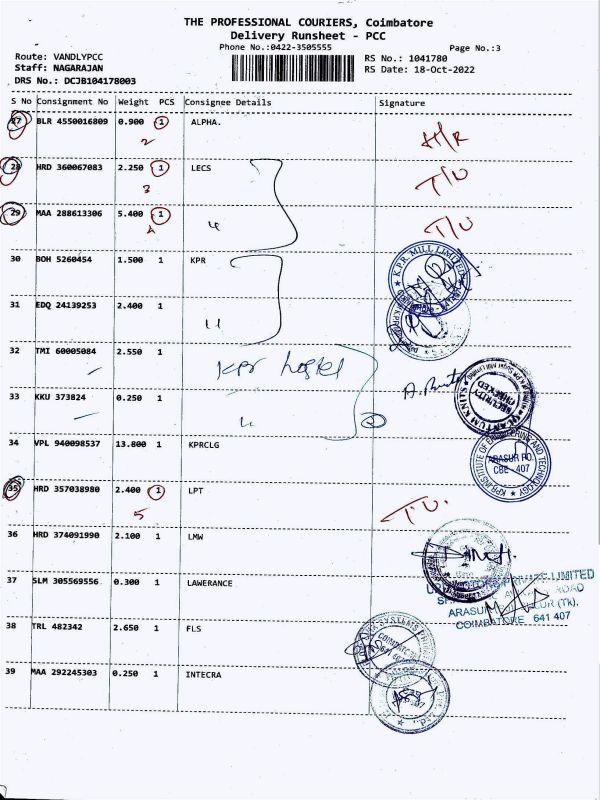 THE PROFESSIONAL COURIERS, Coimbatore
Delivery Runsheet - PCC
Phone No.:0422-3505555 Page No.:3
Route: VANDLYPCC RS No.: 1041780
Staff: NAGARAJAN RS Date: 18-Oct-2022
DRS No.: DCJB104178003
S No Consignment No Weight PCS Consignee Details Signature
27 BLR 4550016809 0.900 1 ALPHA. H/R
2
28 HRD 360067083 2.250 1 LECS T/U
3
29 MAA 288613306 5.400 1 T/U
4 u
30 BOH 5260454 1.500 1 KPR K.P.R. MILL LIMITED
31 EDQ 24139253 2.400 1
u
32 TMI 60005084 2.550 1 KPR hostel
33 KKU 373824 0.250 1 u 2 QUANTUM KNITS SECURITY CHECKED
34 VPL 940098537 13.800 1 KPRCLG KPR INSTITUTE OF ENGINEERING AND TECHNOLOGY ARASUR PO CBE - 407
35 HRD 357038980 2.400 1 LPT T.U.
5
36 HRD 374091990 2.100 1 LMW
37 SLM 305569556 0.300 1 LAWERANCE PRIVATE LIMITED
ROAD
ARASUR
COIMBATORE 641 407
38 TRL 482342 2.650 1 FLS
39 MAA 292245303 0.250 1 INTECRA